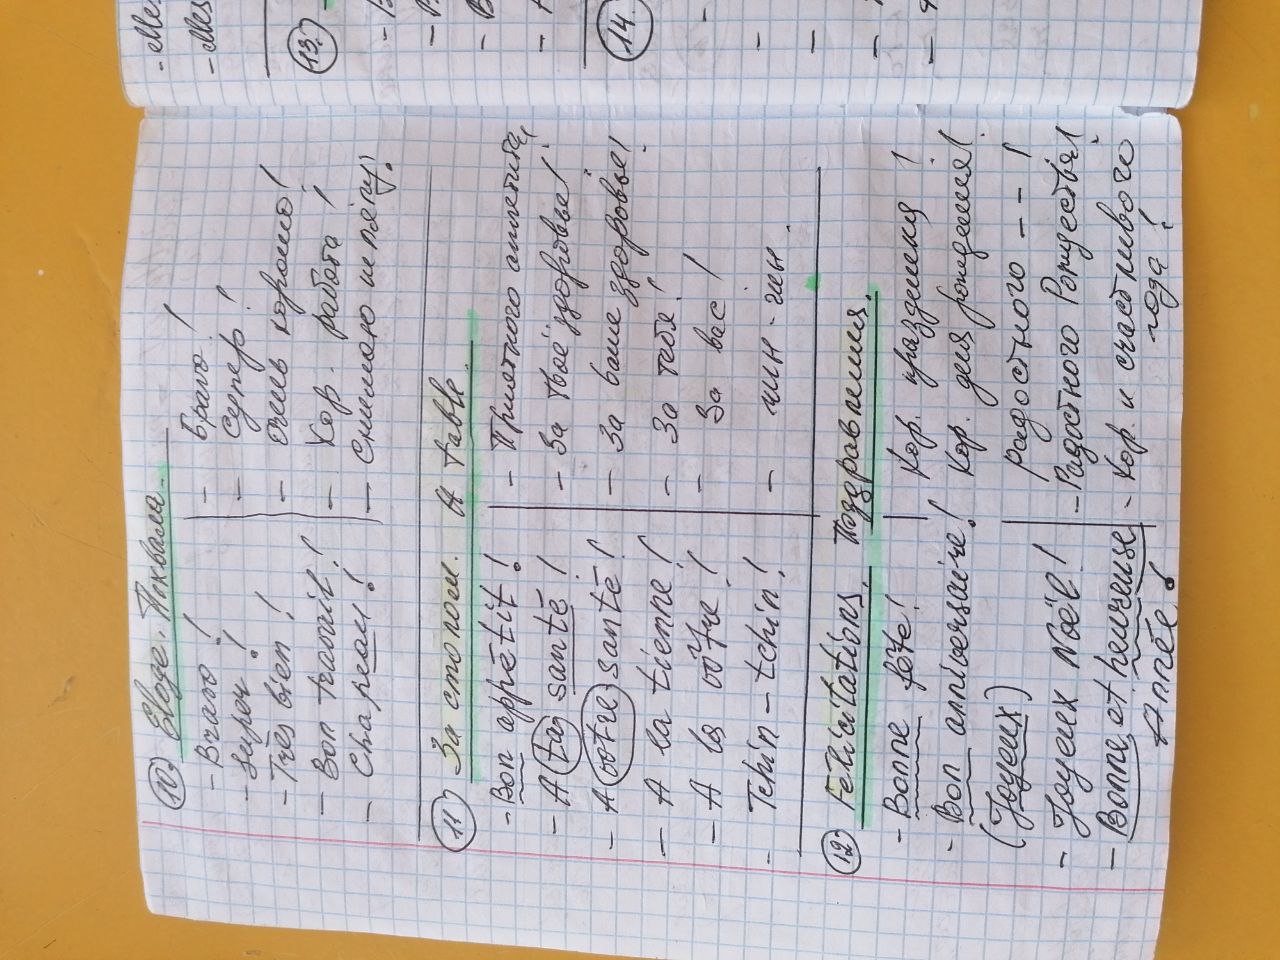 10. Eloge. Похвала.
- Bravo! - Браво!
- Super! - Супер!
- Très bien! - Очень хорошо!
- Bon travail! - Хор. работа!
- Chapeau! - Снимаю шляпу!
11. За столом. A table.
- Bon appétit! - Приятного аппетита!
- A ta santé! - За твоё здоровье!
- A votre santé! - За ваше здоровье!
- A la tienne! - За тебя!
- A la vôtre! - За вас!
- Tchin-tchin! - чин-чин.
12. Felicitations. Поздравления.
- Bonne fête! Хор. праздника!
- Bon anniversaire! Хор. дня рождения!
(Joyeux) радостного - - - !
- Joyeux Noël! - Радостного Рождества!
- Bonne et heureuse - Хор. и счастливого
Année! года!
13.
14.